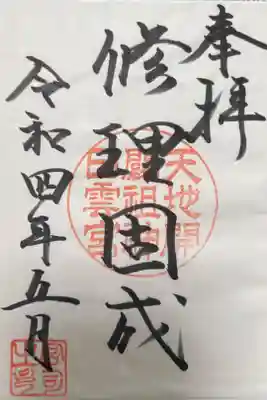 奉拝
修理固成
令和四年五月
天地開
顕祖神
白雲宮
宮司
之印